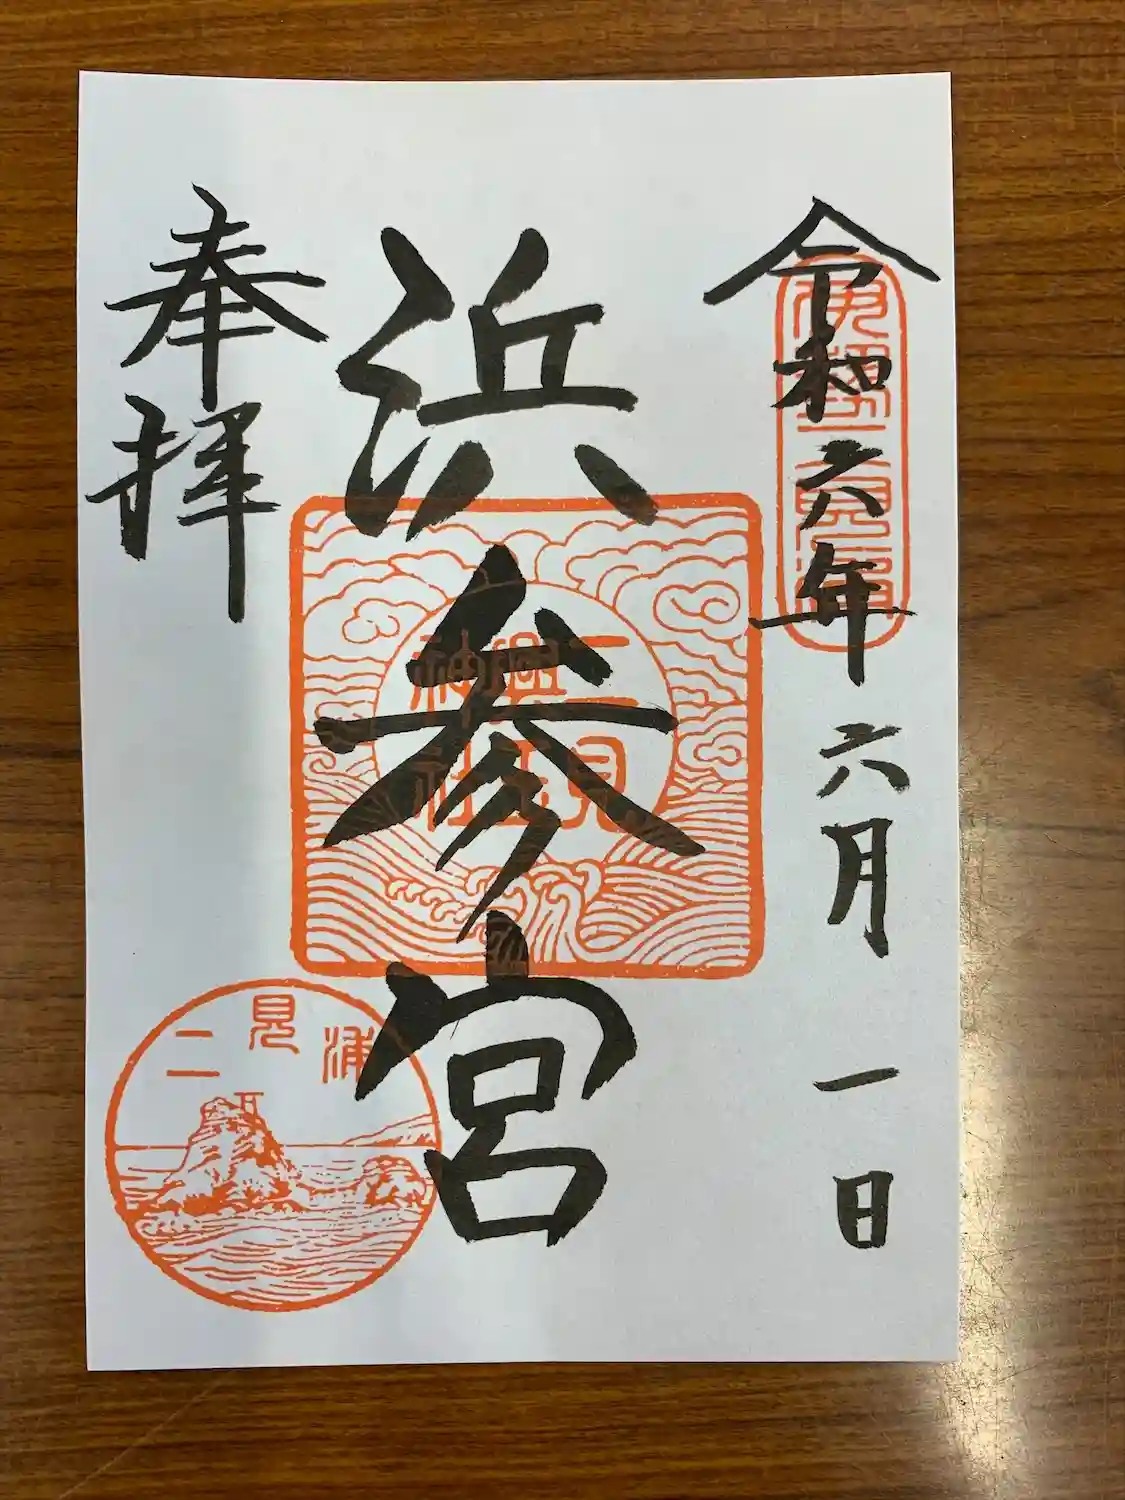 令和六年六月一日
伊勢二見浦
浜参宮
二見
興玉
神社
奉拝
二見浦